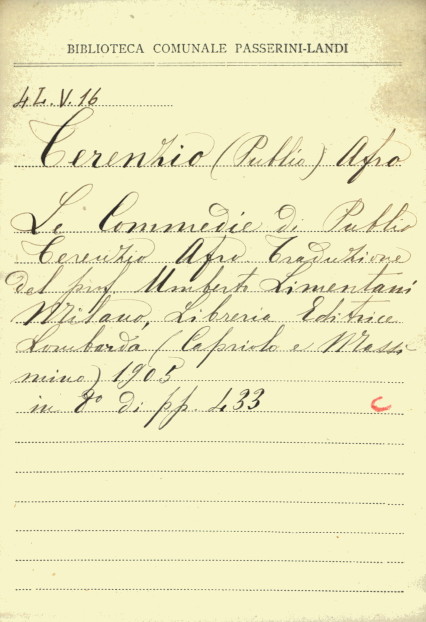 BIBLIOTECA COMUNALE PASSERINI-LANDI
4L.V.16
Terenzio (Publio) Afro
Le Commedie di Publio
Terenzio Afro Traduzione
del prof. Umberto Limentani
Milano, Libreria Editrice
Lombarda (Capriolo e Massi
mino) 1905
in 8° di pp. 433
C